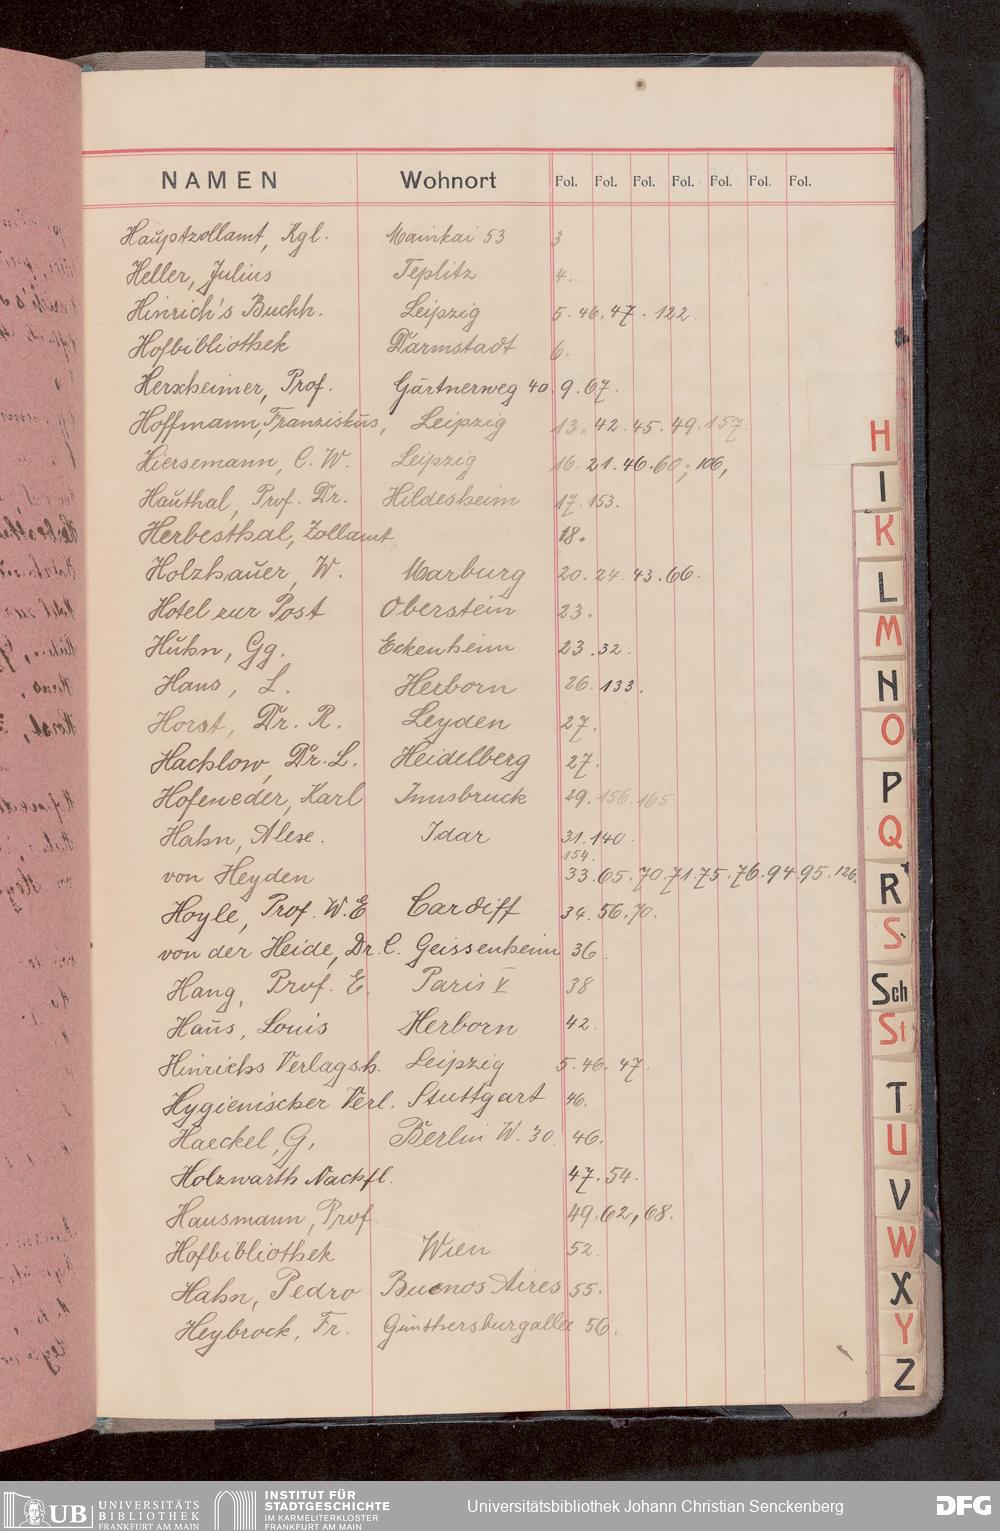 NAMEN Wohnort Fol. Fol. Fol. Fol. Fol. Fol. Fol.
Hauptzollamt, Kgl. Mainkai 53 3
Heller, Julius Teplitz 4.
Hinrich's Buchh. Leipzig 5. 46. 47. 122
Hofbibliothek Darmstadt 6.
Herxheimer, Prof. Gärtnerweg 40. 9. 67.
Hoffmann, Franziskus, Leipzig 13. 42. 45. 49. 157.
Hiersemann, C. W. Leipzig 16. 21. 46. 60; 106,
Hauthal, Prof. Dr. Hildesheim 17. 153.
Herbesthal, Zollamt, 18.
Holzhauer, W. Marburg 20. 24. 43. 66.
Hotel zur Post Oberstein 23.
Huhn, Gg. Eckenheim 23. 32.
Haus, L. Herborn 26. 133.
Horst, Dr. R. Leyden 27.
Hachlow, Dr. L. Heidelberg 27.
Hofeneder, Karl Innsbruck 29. 156. 165.
Hahn, Alexe. Idar 31. 140.
154.
von Heyden 33. 65. 70. 71. 75. 76. 94 95. 126.
Hoyle, Prof. W. E Cardiff 34. 56. 70.
von der Heide, Dr. C. Geissenheim 36.
Hang, Prof. E. Paris V 38
Haus, Louis Herborn 42.
Hinrichs Verlagsh. Leipzig 5. 46. 47.
Hygienischer Verl. Stuttgart 46.
Haeckel, G, Berlin W. 30. 46.
Holzwarth Nachfl. 47. 54.
Hausmann, Prof. 49. 62, 68.
Hofbibliothek Wien 52.
Hahn, Pedro Buenos Aires 55.
Heybrock, Fr. Günthersburgallee 56.
H
I
K
L
M
N
O
P
Q
R
S
Sch
St
T
U
V
W
X
Y
Z
UB UNIVERSITÄTS
BIBLIOTHEK
FRANKFURT AM MAIN
INSTITUT FÜR
STADTGESCHICHTE
IM KARMELITERKLOSTER
FRANKFURT AM MAIN
Universitätsbibliothek Johann Christian Senckenberg
DFG